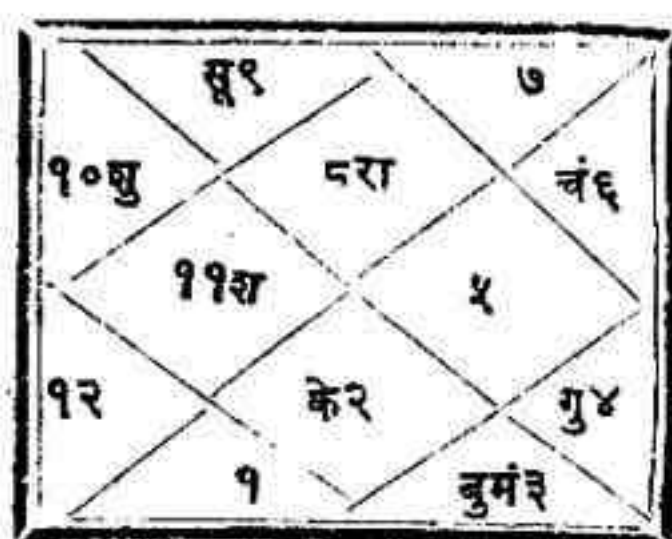 सू९ ७
१०शु ८रा चं६
११श ५
१२ के२ गु४
१ बुमं३